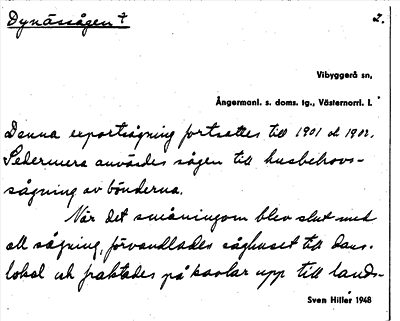 Dynässågen 4
2.
Vibyggerå sn,
Ångermanl. s. doms. tg., Västernorrl. l.
Denna exportsågning fortsattes till 1901 el 1902.
Sedermera användes sågen till husbehovs-
sågning av bönderna.
När det småningom blev slut med
all sågning, förvandlades såghuset till dans-
lokal och fraktades på kavlar upp till lands-
Sven Hillér 1948